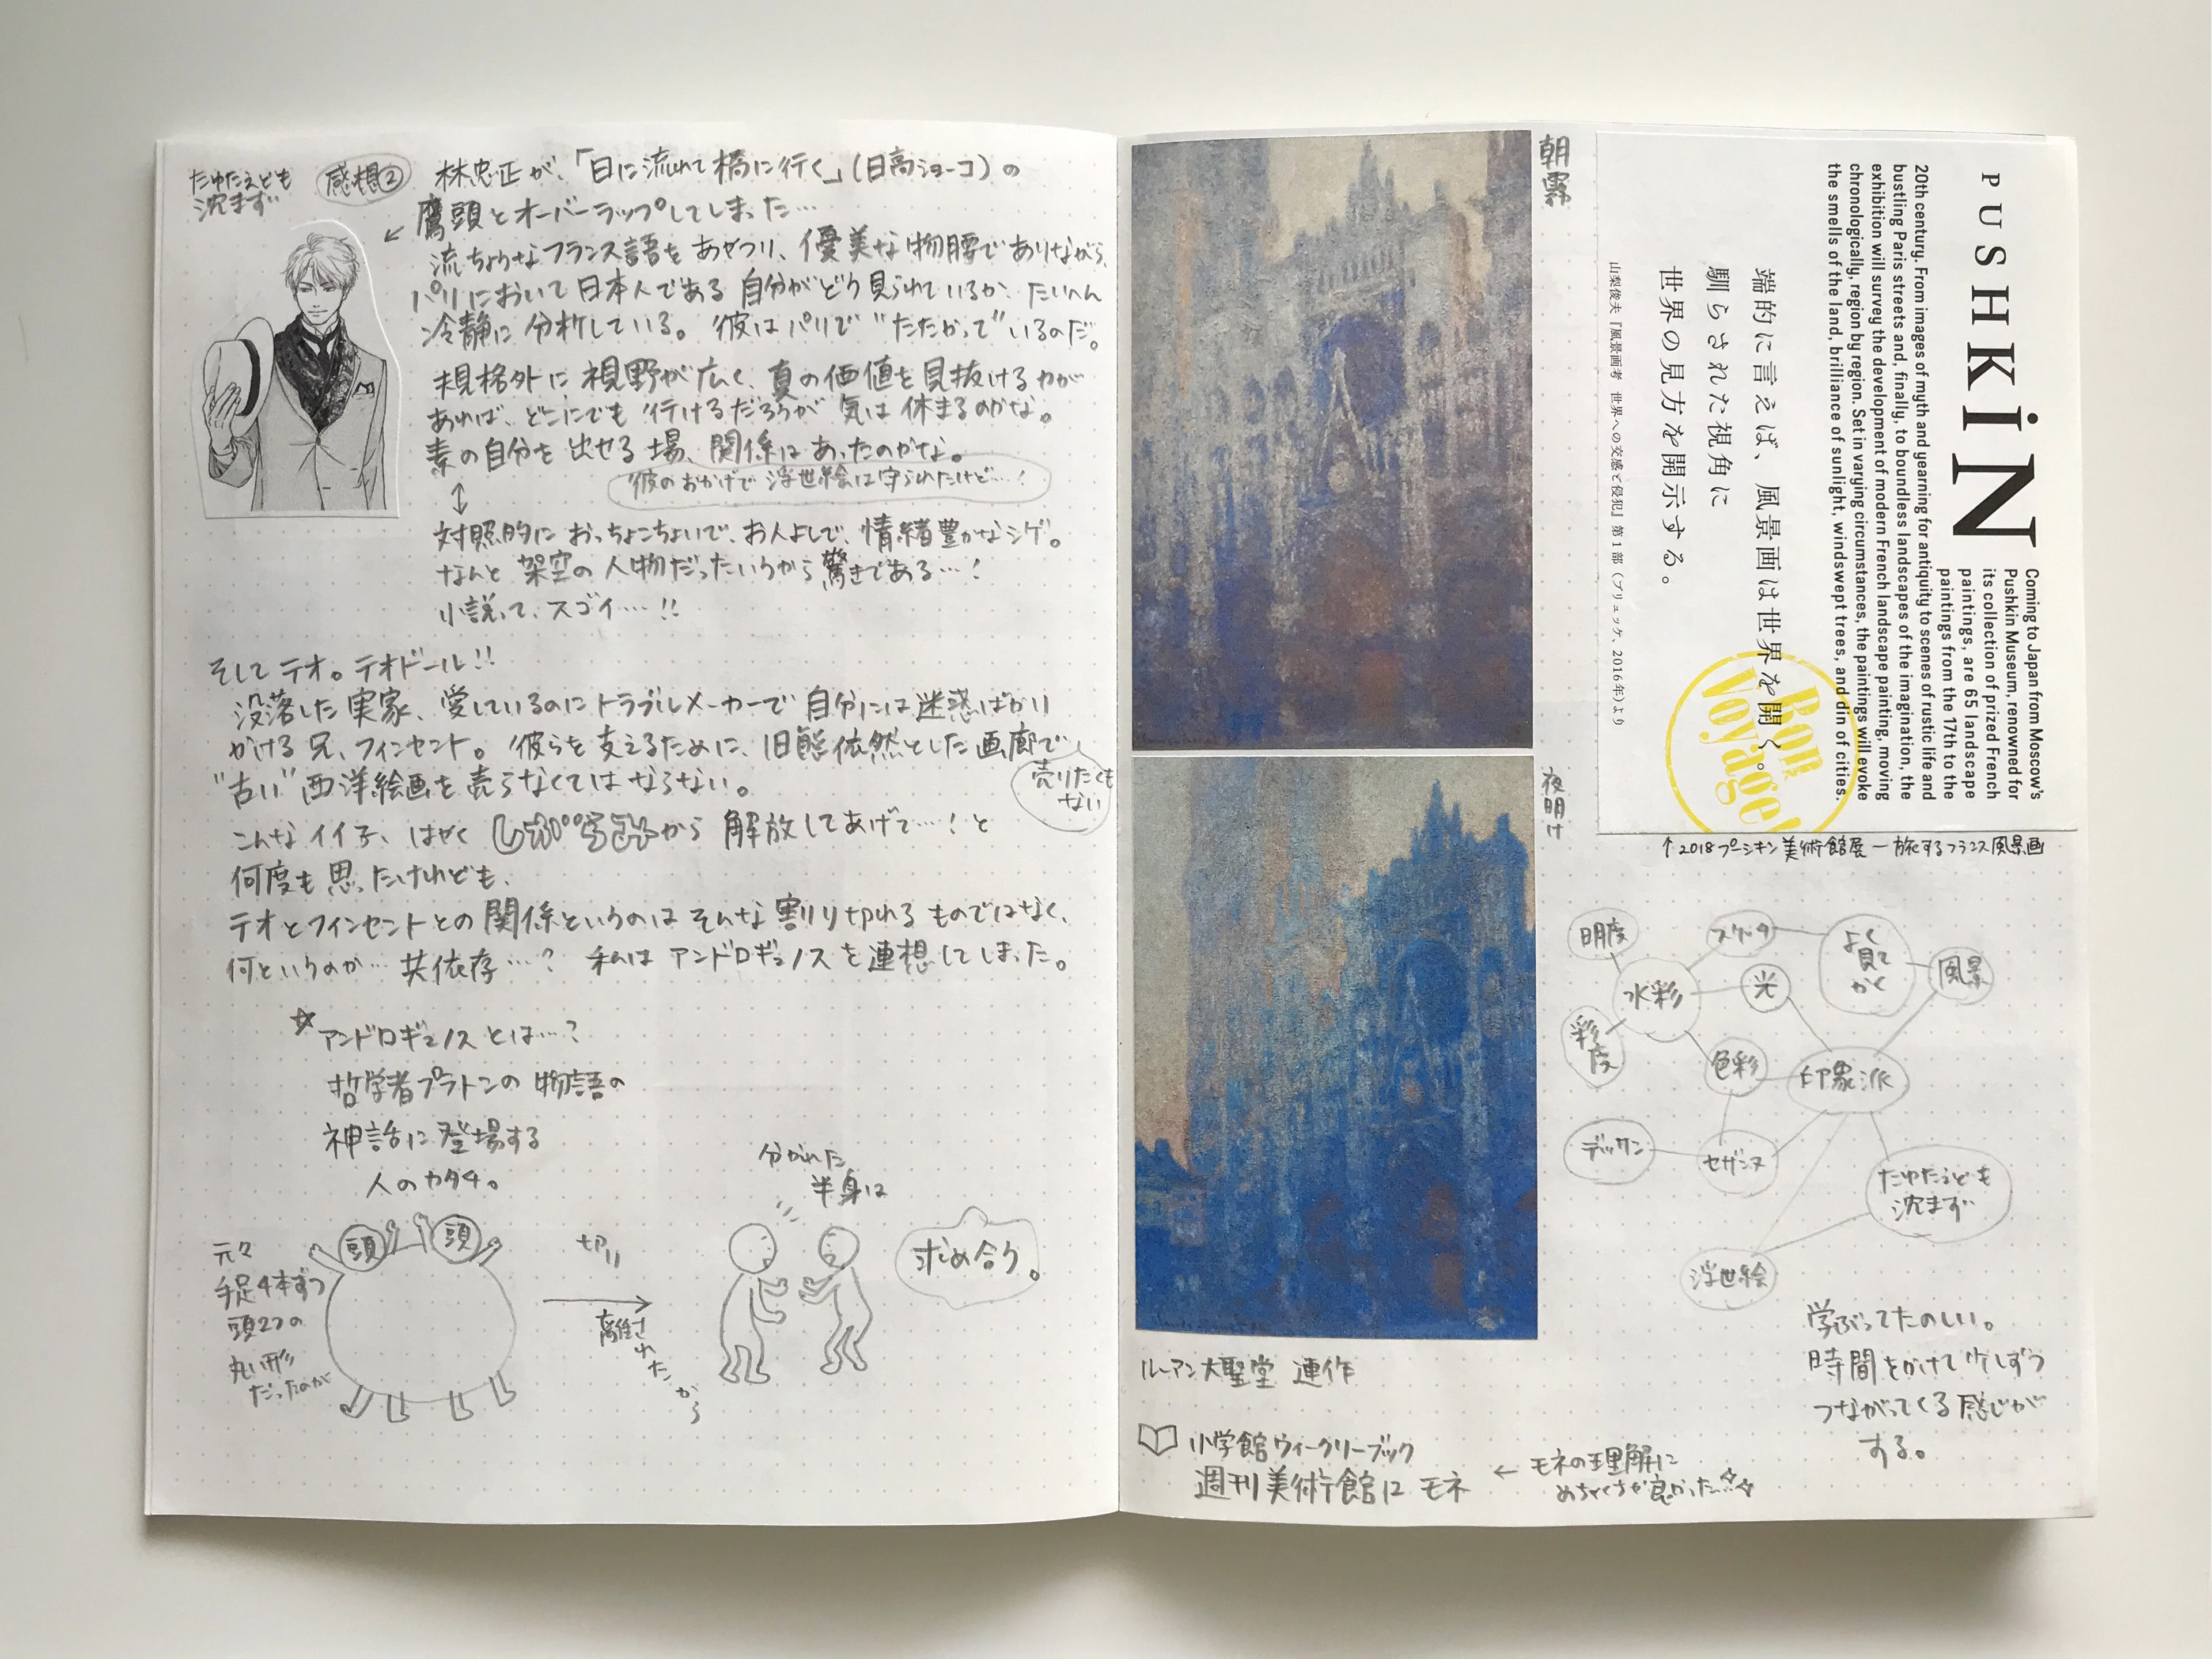 たゆたえども
沈まず
感想②
林忠正が、「日に流れて橋に行く」(日高ショーコ)の
鷹頭とオーバーラップしてしまった…
流ちょうなフランス語をあやつり、優美な物腰でありながら、
パリにおいて日本人である自分がどう見られているか、たいへん
冷静に分析している。彼はパリで"たたかって"いるのだ。
規格外に視野が広く、真の価値を見抜ける力が
あれば、どこにでも行けるだろうが気は休まるのかな。
素の自分を出せる場、関係はあったのかな。
彼のおかげで浮世絵は守られたけど…!
対照的におっちょこちょいで、お人よしで、情緒豊かなシゲ。
なんと架空の人物だったいうから驚きである…!
小説って、スゴイ…!!
そしてテオ。テオドール!!
没落した実家、愛しているのにトラブルメーカーで自分には迷惑ばかり
かける兄、フィンセント。彼らを支えるために、旧態依然とした画廊で
"古い"西洋絵画を売らなくてはならない。
売りたくも
ない
こんなイイ子、はやく から解放してあげて…!と
何度も思ったけれども、
テオとフィンセントとの関係というのはそんな割り切れるものではなく、
何というのか…共依存…?私はアンドロギュノスを連想してしまった。
☆アンドロギュノスとは…?
哲学者プラトンの物語の
神話に登場する
人のカタチ。
元々
手足4本ずつ
頭2つの
丸い形
だったのが
頭
頭
切り
離されたから
分かれた
半身は
求め合う。
朝霧
夜明け
ルーアン大聖堂 連作
小学館ウィークリーブック
週刊美術館12 モネ
← モネの理解に
めちゃくちゃ良かった…☆
PUSHKIN
Coming to Japan from Moscow's
Pushkin Museum, renowned for
its collection of prized French
paintings, are 65 landscape
paintings from the 17th to the
20th century. From images of myth and yearning for antiquity to scenes of rustic life and
bustling Paris streets and, finally, to boundless landscapes of the imagination, the
exhibition will survey the development of modern French landscape painting, moving
chronologically, region by region. Set in varying circumstances, the paintings will evoke
the smells of the land, brilliance of sunlight, windswept trees, and din of cities.
端的に言えば、風景画は世界を開く。
馴らされた視角に
世界の見方を開示する。
山梨俊夫『風景画考 世界への交感と侵犯』第1部(ブリュッケ、2016年)より
Bon
Voyage!
↑2018プーシキン美術館展ー旅するフランス風景画
明度
スケッチ
よく
見て
かく
風景
水彩
光
彩度
色彩
印象派
デッサン
セザンヌ
たゆたえども
沈まず
浮世絵
学ぶってたのしい。
時間をかけて少しずつ
つながってくる感じが
する。